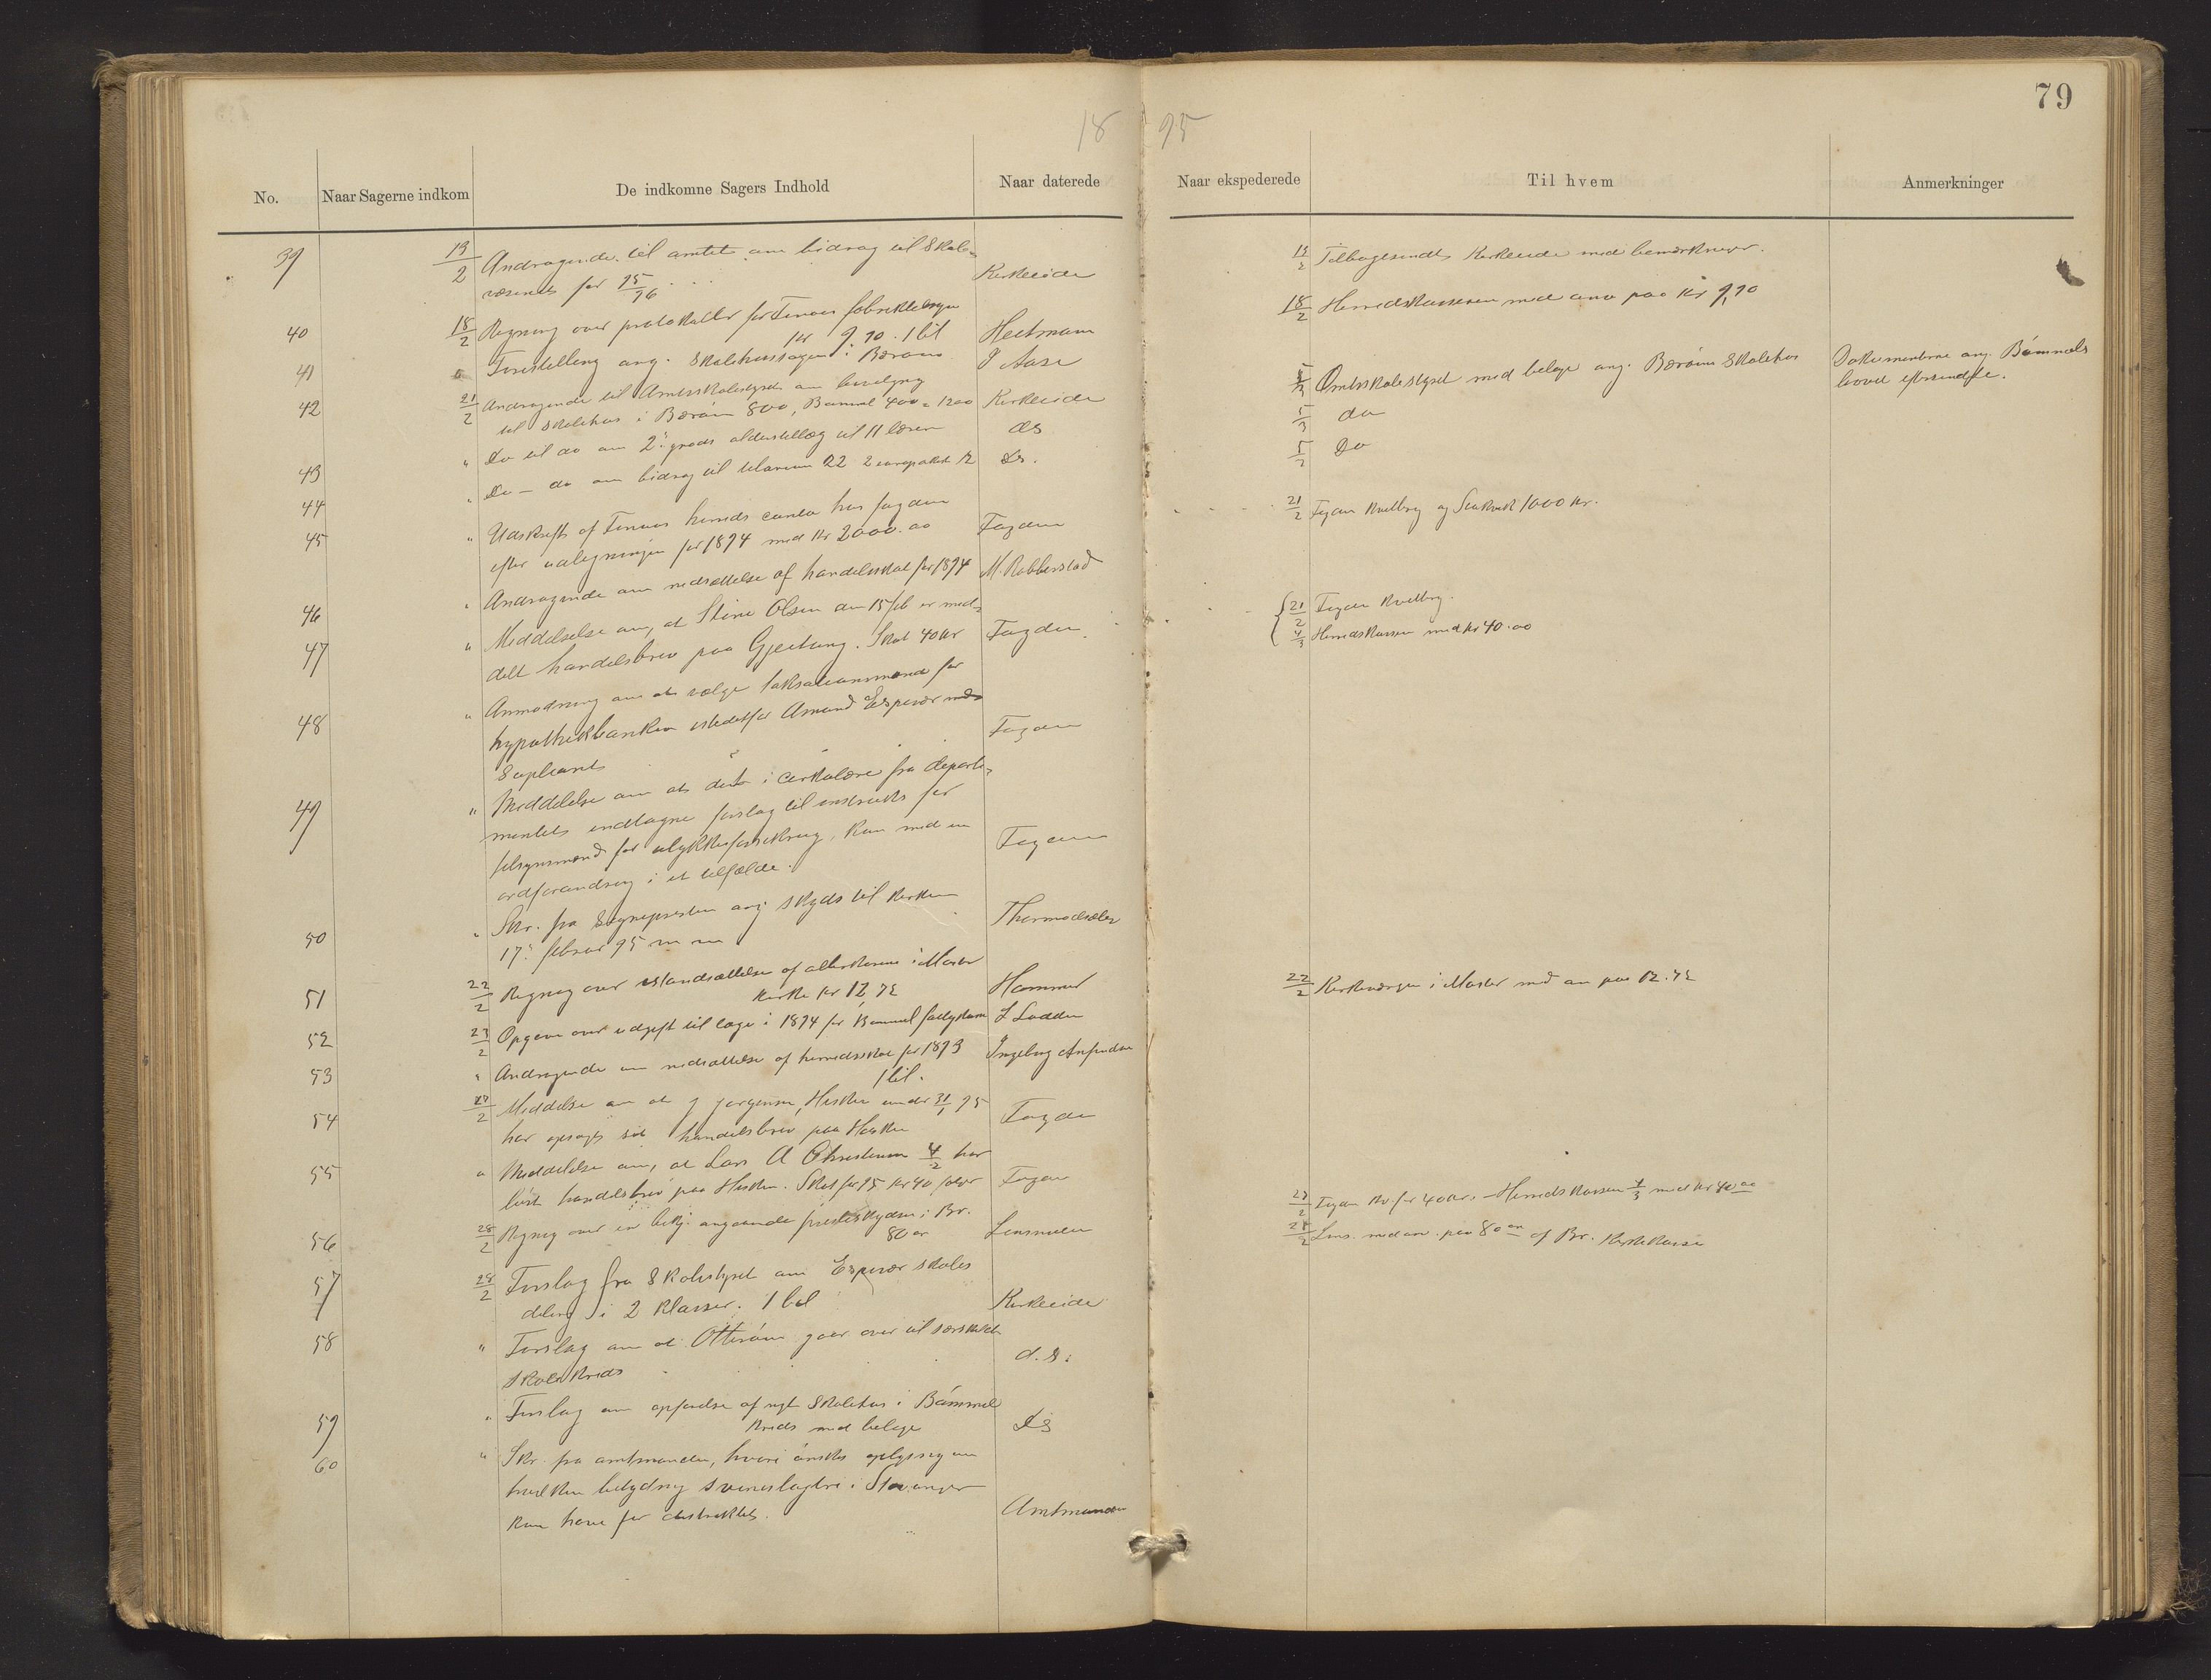 79
18 95
No.
Naar Sagerne indkom
De indkomne Sagers Indhold
Naar daterede
Naar ekspederede
Til hvem
Anmerkninger
39 13/2 Andragende til amtet om bidrag til Skole-
væsenet for 95/96 Kirkeeide
13/2 Tilbagesendt Kirkeeide med bemærkninger.
40 18/2 Regning over protokoller for Finnaas
kr 9,70. 1 bil Heitmann
18/2 Herredskasseren med anv paa kr 9,70
41 " Forestilling ang. Skolehussagen i Børøen Aase
42 21/2 Andragende til Amtsskolestyret om
til Skolehus i Børøen 800, Bømmel 400 = 1200 Kirkeeide
5/3 Amtsskolestyret med belage ang. Børøens Skolehus
Dokumenterne ang. Bømmels
43 " Do til do om 2. grads alderstillæg til 11 lærere ds
5/3 do
44 " Do – do om bidrag til ds.
5/3 Do
45 " Udskrift af Finnaas herreds conto hos fogden
efter udlægningen for 1894 med kr 2000.00 Fogden
21/2 Fogden Kvittering 1000 kr.
46 " Andragende om nedsættelse af handelsskat for 1894 M. Robberstad
47 " Meddelelse om, at Stine Olsen den 15 feb er med-
delt handelsbrev paa Gjeitung. Skat 40 kr Fogden
21/2 Fogden Kvittering.
4/3 Herredskassen med kr 40.00
48 " Anmodning om at vælge taksationsmænd for
hypothekbanken istedetfor Amund Espevær med
Supleant Fogden
49 " Meddelelse om at det i cirkulære fra departe-
mentet indtagne forslag til instruks for
tilsynsmænd for ulykkesforsikring, kun med en
ordforandring i et tilfælde. Fogden
50 " Skr. fra Sognepresten ang skyds til kirken
17. februar 95 m m Thormodsæter
51 22/2 Regning over istandsættelse af alterkarene i Moster
kirke kr 12,72 Hammer
22/2 Kirkeværgen i Moster med an paa 12.72
52 23/2 Opgave over udgift til læge i 1894 for Bømmel L Lodden
53 " Andragende om nedsættelse af herredsskat for 1893
1 bil. Ingeborg
54 27/2 Meddelelse om at J Jørgensen, Hisken under 31/1 95
har opsagt sit handelsbrev paa Hisken Fogden
55 " Meddelelse om, at Lars A Christensen 4/2 har
løst handelsbrev paa Hisken. Skat for 95 kr 40 Fogden
27/2 Fogden kv for 40 kr. – Herredskassen 4/3 med kr 40.00
56 28/2 Regning over en bekj. angaaende presteskydsen i Br.
80 ør Lensmanden
28/2 Lens. med anv. paa 80 øre af Br. Kirkekasse
57 28/2 Forslag fra Skolestyret om Espevær skoles
deling i 2 klasser. 1 bil Kirkeeide
58 " Forslag om at Otterøen gaar over til særskilt
skolekreds d.s.
59 " Forslag om opførelse af nyt Skolehus i Bømmel
kreds med belage Ds
60 " Skr. fra amtmanden, hvori ønskes oplysning om
hvilken betydning svineslagteri i Stavanger
kan have for distriktet. Amtmanden